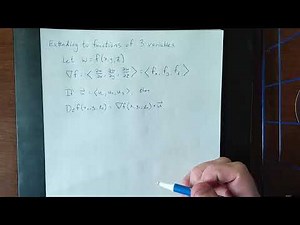 Extending to functions of 3 variables
Let w = f(x,y,z)
∇f = ⟨∂w/∂x, ∂w/∂y, ∂w/∂z⟩ = ⟨fₓ, f_y, f_z⟩
If u⃗ = ⟨u₁, u₂, u₃⟩, then
D_u f(x₀,y₀,z₀) = ∇f(x₀,y₀,z₀) • u⃗